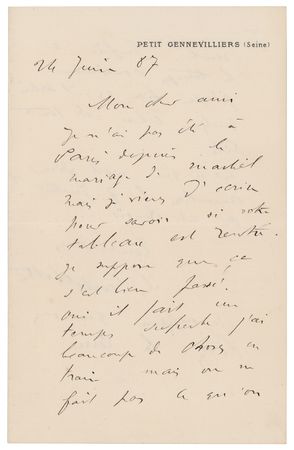 PETIT GENNEVILLIERS (Seine)
24 Juin 87
Mon cher ami
Je n'ai pas été à
Paris depuis le
mariage de Martial
mais je viens d'écrire
pour savoir si votre
tableau est rentré.
Je suppose que ça
s'est bien passé.
oui il fait un
temps superbe j'ai
beaucoup de choses en
train mais on ne
fait pas ce qu'on